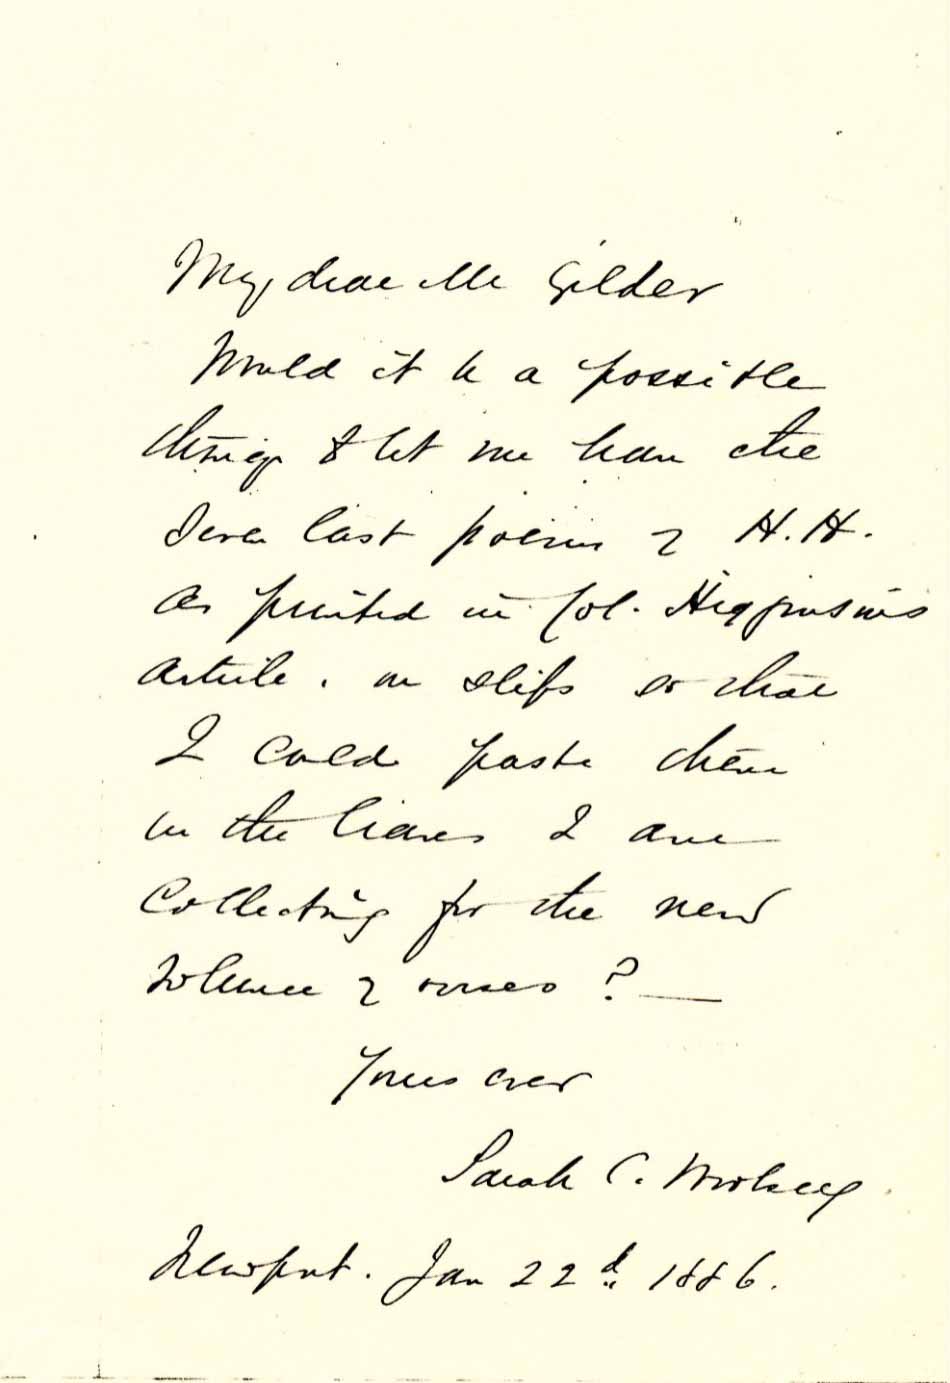 My dear Mr Gilder
Would it be a possible
thing to let me have the
Seven last poems of H.H.
as printed in Col. Higginson's
article. on slips so that
I could paste them
in the leaves I am
Collecting for the new
Volume of verses? —
Yours ever
Sarah C. Woolsey
Newport. Jan 22d. 1886.